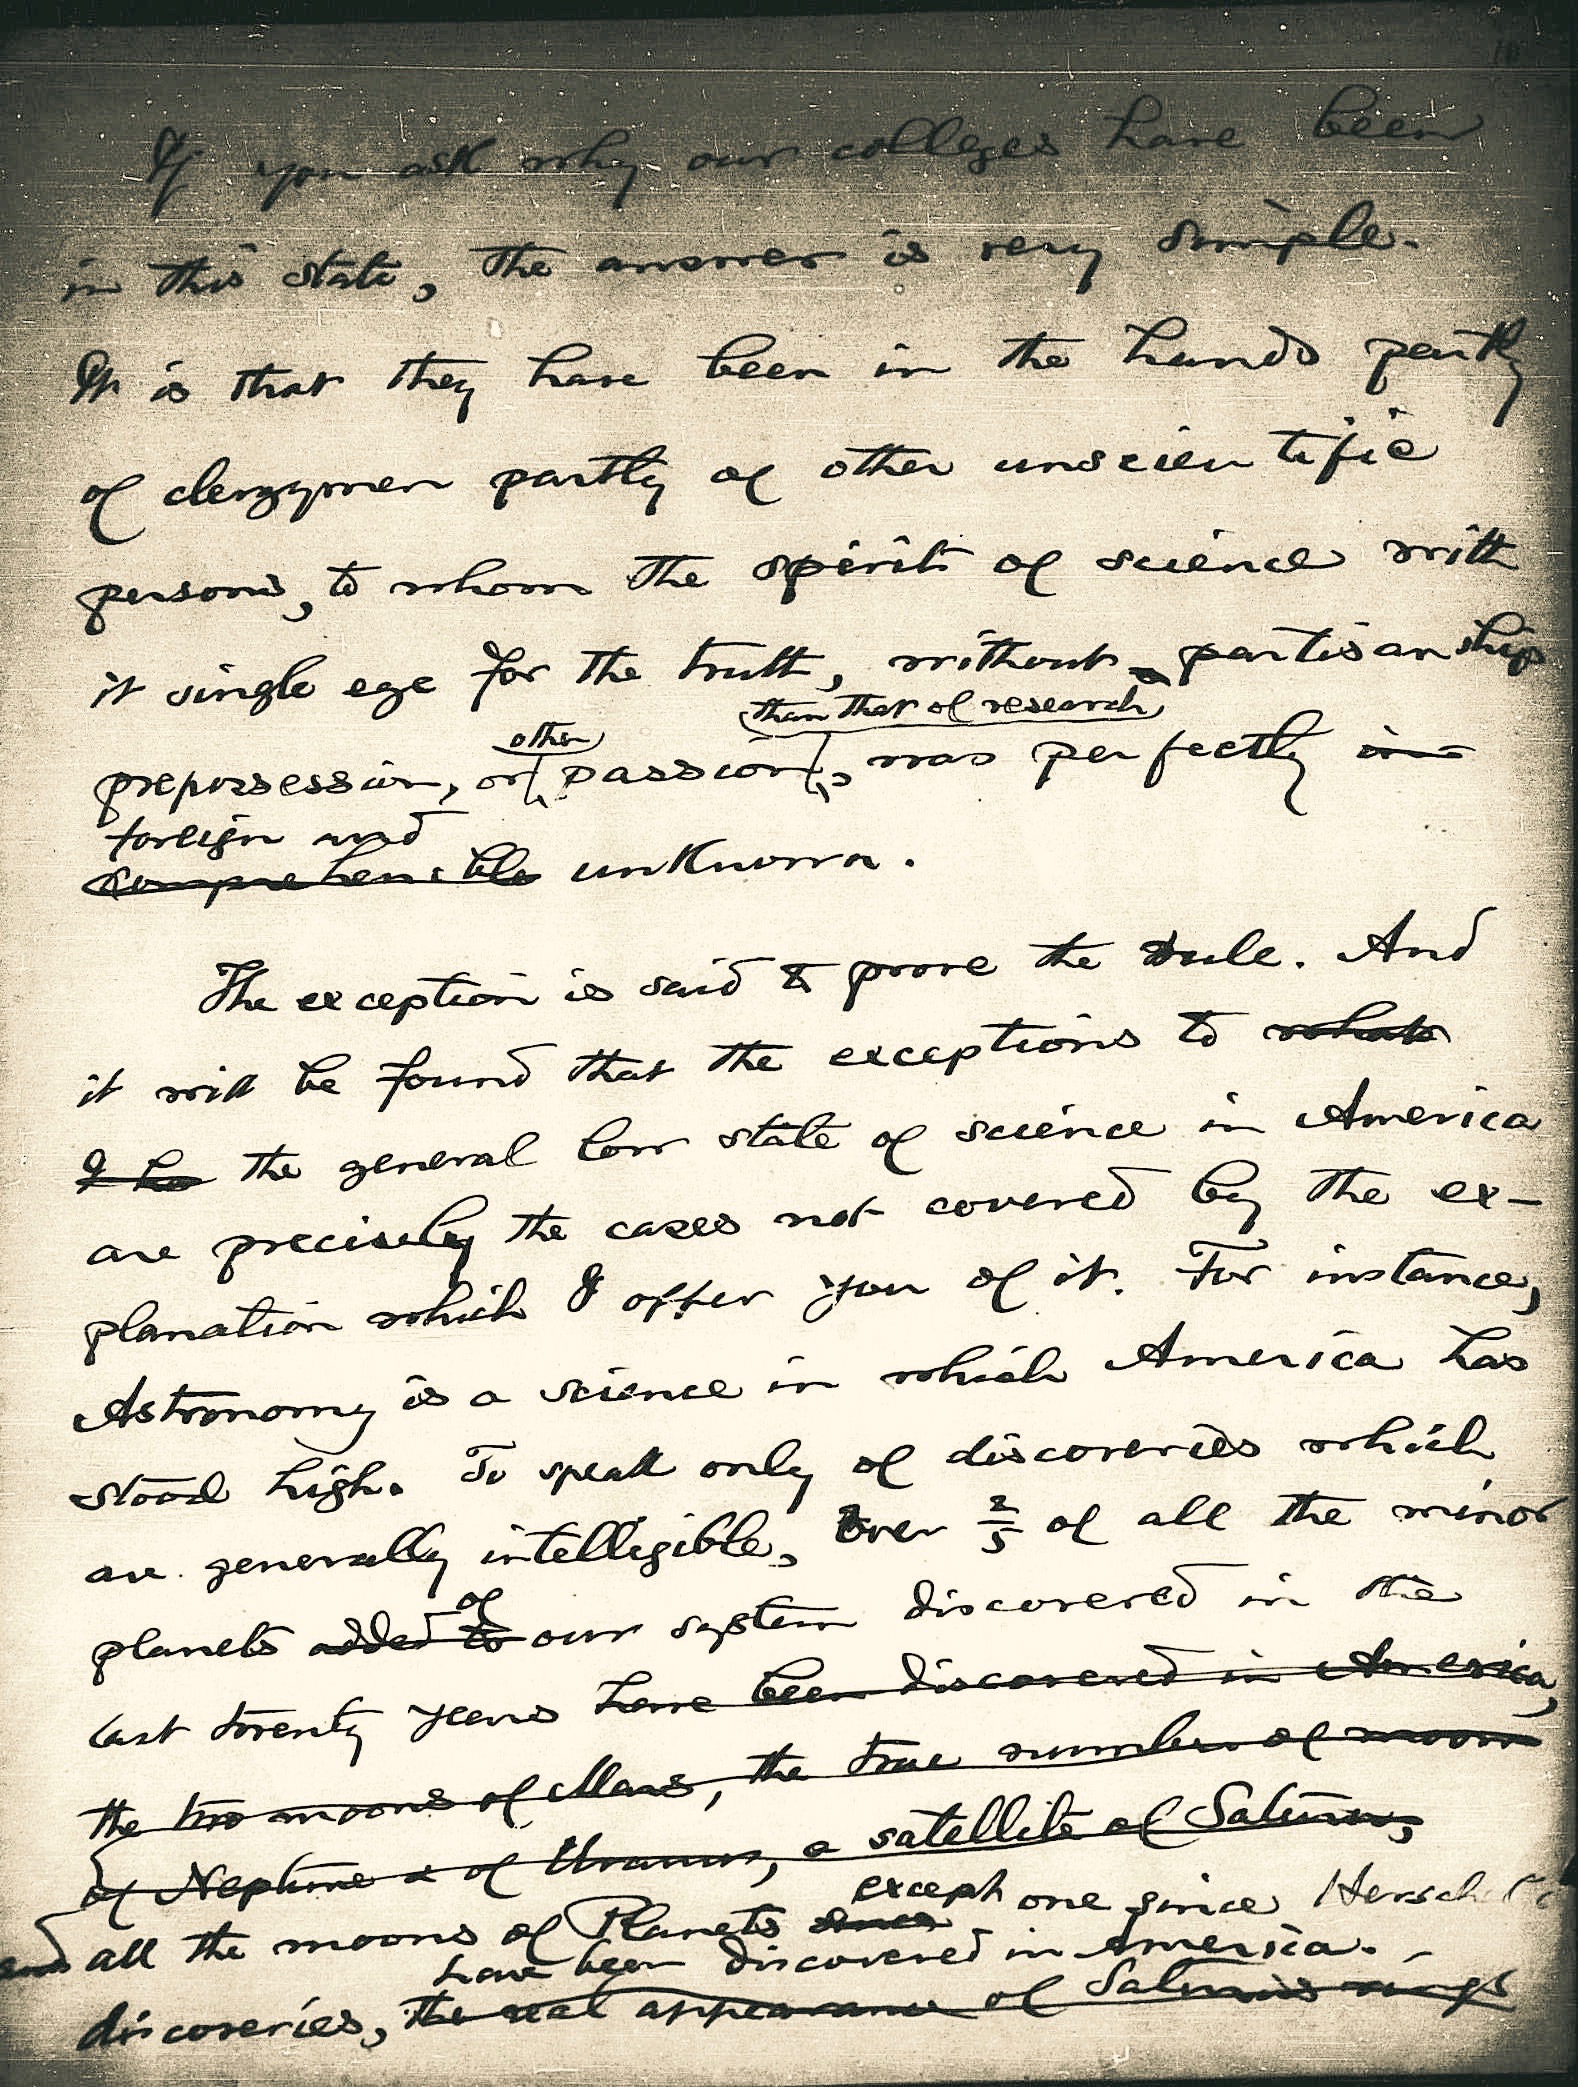 If you ask why our colleges have been
in this state, the answer is very simple.
It is that they have been in the hands partly
of clergymen partly of other unscientific
persons, to whom the spirit of science with
it single eye for the truth, without partisanship
than that of research
other
prepossession, or passion, was perfectly in-
foreign and
comprehensible unknown.
The exception is said to prove the rule. And
it will be found that the exceptions to what
I ha the general low state of science in America
are precisely the cases not covered by the ex-
planation which I offer you of it. For instance,
Astronomy is a science in which America has
stood high. To speak only of discoveries which
are generally intelligible, over 2/5 of all the minor
of
planets added to our system discovered in the
last twenty years have been discovered in America,
the two moons of Mars, the true number of moons
of Neptune & of Uranus, a satellite of Saturn,
except one since Herschel's
and all the moons of Planets since
have been discovered in America.
discoveries, the real appearance of Saturn's rings